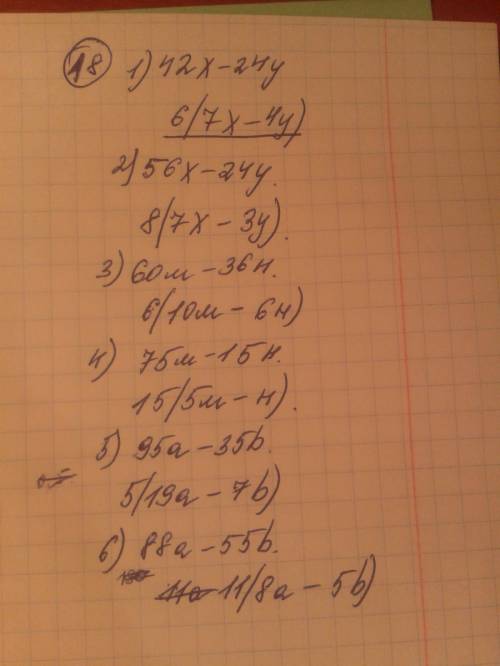 18 1) 42x-24y
6(7x-4y)
2) 56x-24y.
8(7x-3y).
3) 60м-36н.
6(10м-6н)
4) 75м-15н.
15(5м-н).
5) 95a-35b.
5(19a-7b)
6) 88a-55b.
11(8a-5b)